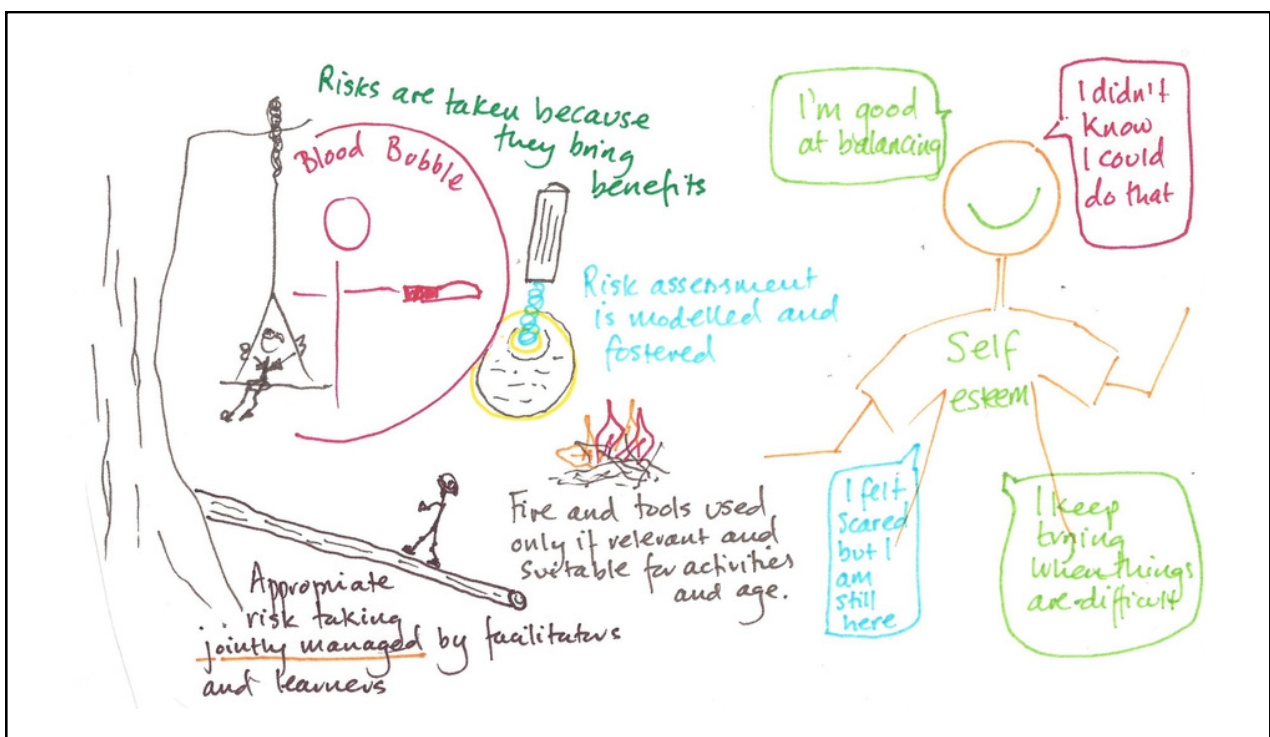 Risks are taken because
they bring
benefits
Blood Bubble
Risk assessment
is modelled and
fostered
Fire and tools used
only if relevant and
suitable for activities
and age.
Appropriate
risk taking
jointly managed by facilitators
and learners
I'm good
at balancing
I didn't
know
I could
do that
Self
esteem
I felt
scared
but I
am
still
here
I keep
trying
when things
are difficult